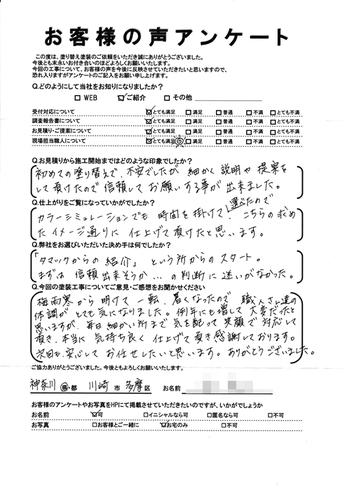 お客様の声アンケート
この度は、塗り替え塗装のご依頼をいただき誠にありがとうございました。
今後とも末永いお付き合いのほどよろしくお願いいたします。
今回の工事について、お客様の声を今後に反映させていただきたいと思いますので、
恐れ入りますがアンケートのご記入をお願い申し上げます。
Q.どのようにして当社をお知りになりましたか?
□WEB ☑ご紹介 □その他
受付対応について ☑とても満足 □満足 □普通 □不満 □とても不満
調査報告書について ☑とても満足 □満足 □普通 □不満 □とても不満
お見積り・ご提案について ☑とても満足 □満足 □普通 □不満 □とても不満
現場担当職人について ☑とても満足 □満足 □普通 □不満 □とても不満
Q.お見積りから施工開始まではどのような印象でしたか?
初めての塗り替えで、不安でしたが 細かく説明や提案を
して頂けたので信頼してお願いする事が出来ました。
Q.仕上がりをご覧になっていかがでしたか?
カラーシミュレーションでも 時間を掛けて選んだので、こちらの求め
たイメージ通りに 仕上げて頂けたと思います。
Q.弊社をお選びいただいた決め手は何でしたか?
「タマックからの紹介」という所からのスタート。
まずは 信頼出来そうか…の判断に迷いがなかった。
Q.今回の塗装工事についてご意見・ご感想をお聞かせください
梅雨寒から 明けて一転、暑くなったので 職人さん達の
体調が とても気になりました。例年にも増して 大変だったと
思いますが、毎日 細かい所まで 気を配って 笑顔で 対応して
頂き、本当に 気持ち良く 仕上げて頂き感謝しております。
次回も安心して お任せしたいと思います。ありがとうございました。
ご協力ありがとうございました。今後ともよろしくお願いいたします。
神奈川 県・都 川崎 市 多摩 区 お名前
お客様のアンケートやお写真をHPにて掲載させていただきたいのですが、いかがでしょうか
お名前 ☑可 □イニシャルなら可 □匿名なら可 □不可
お写真 □お客様とご一緒に ☑お宅のみ □不可